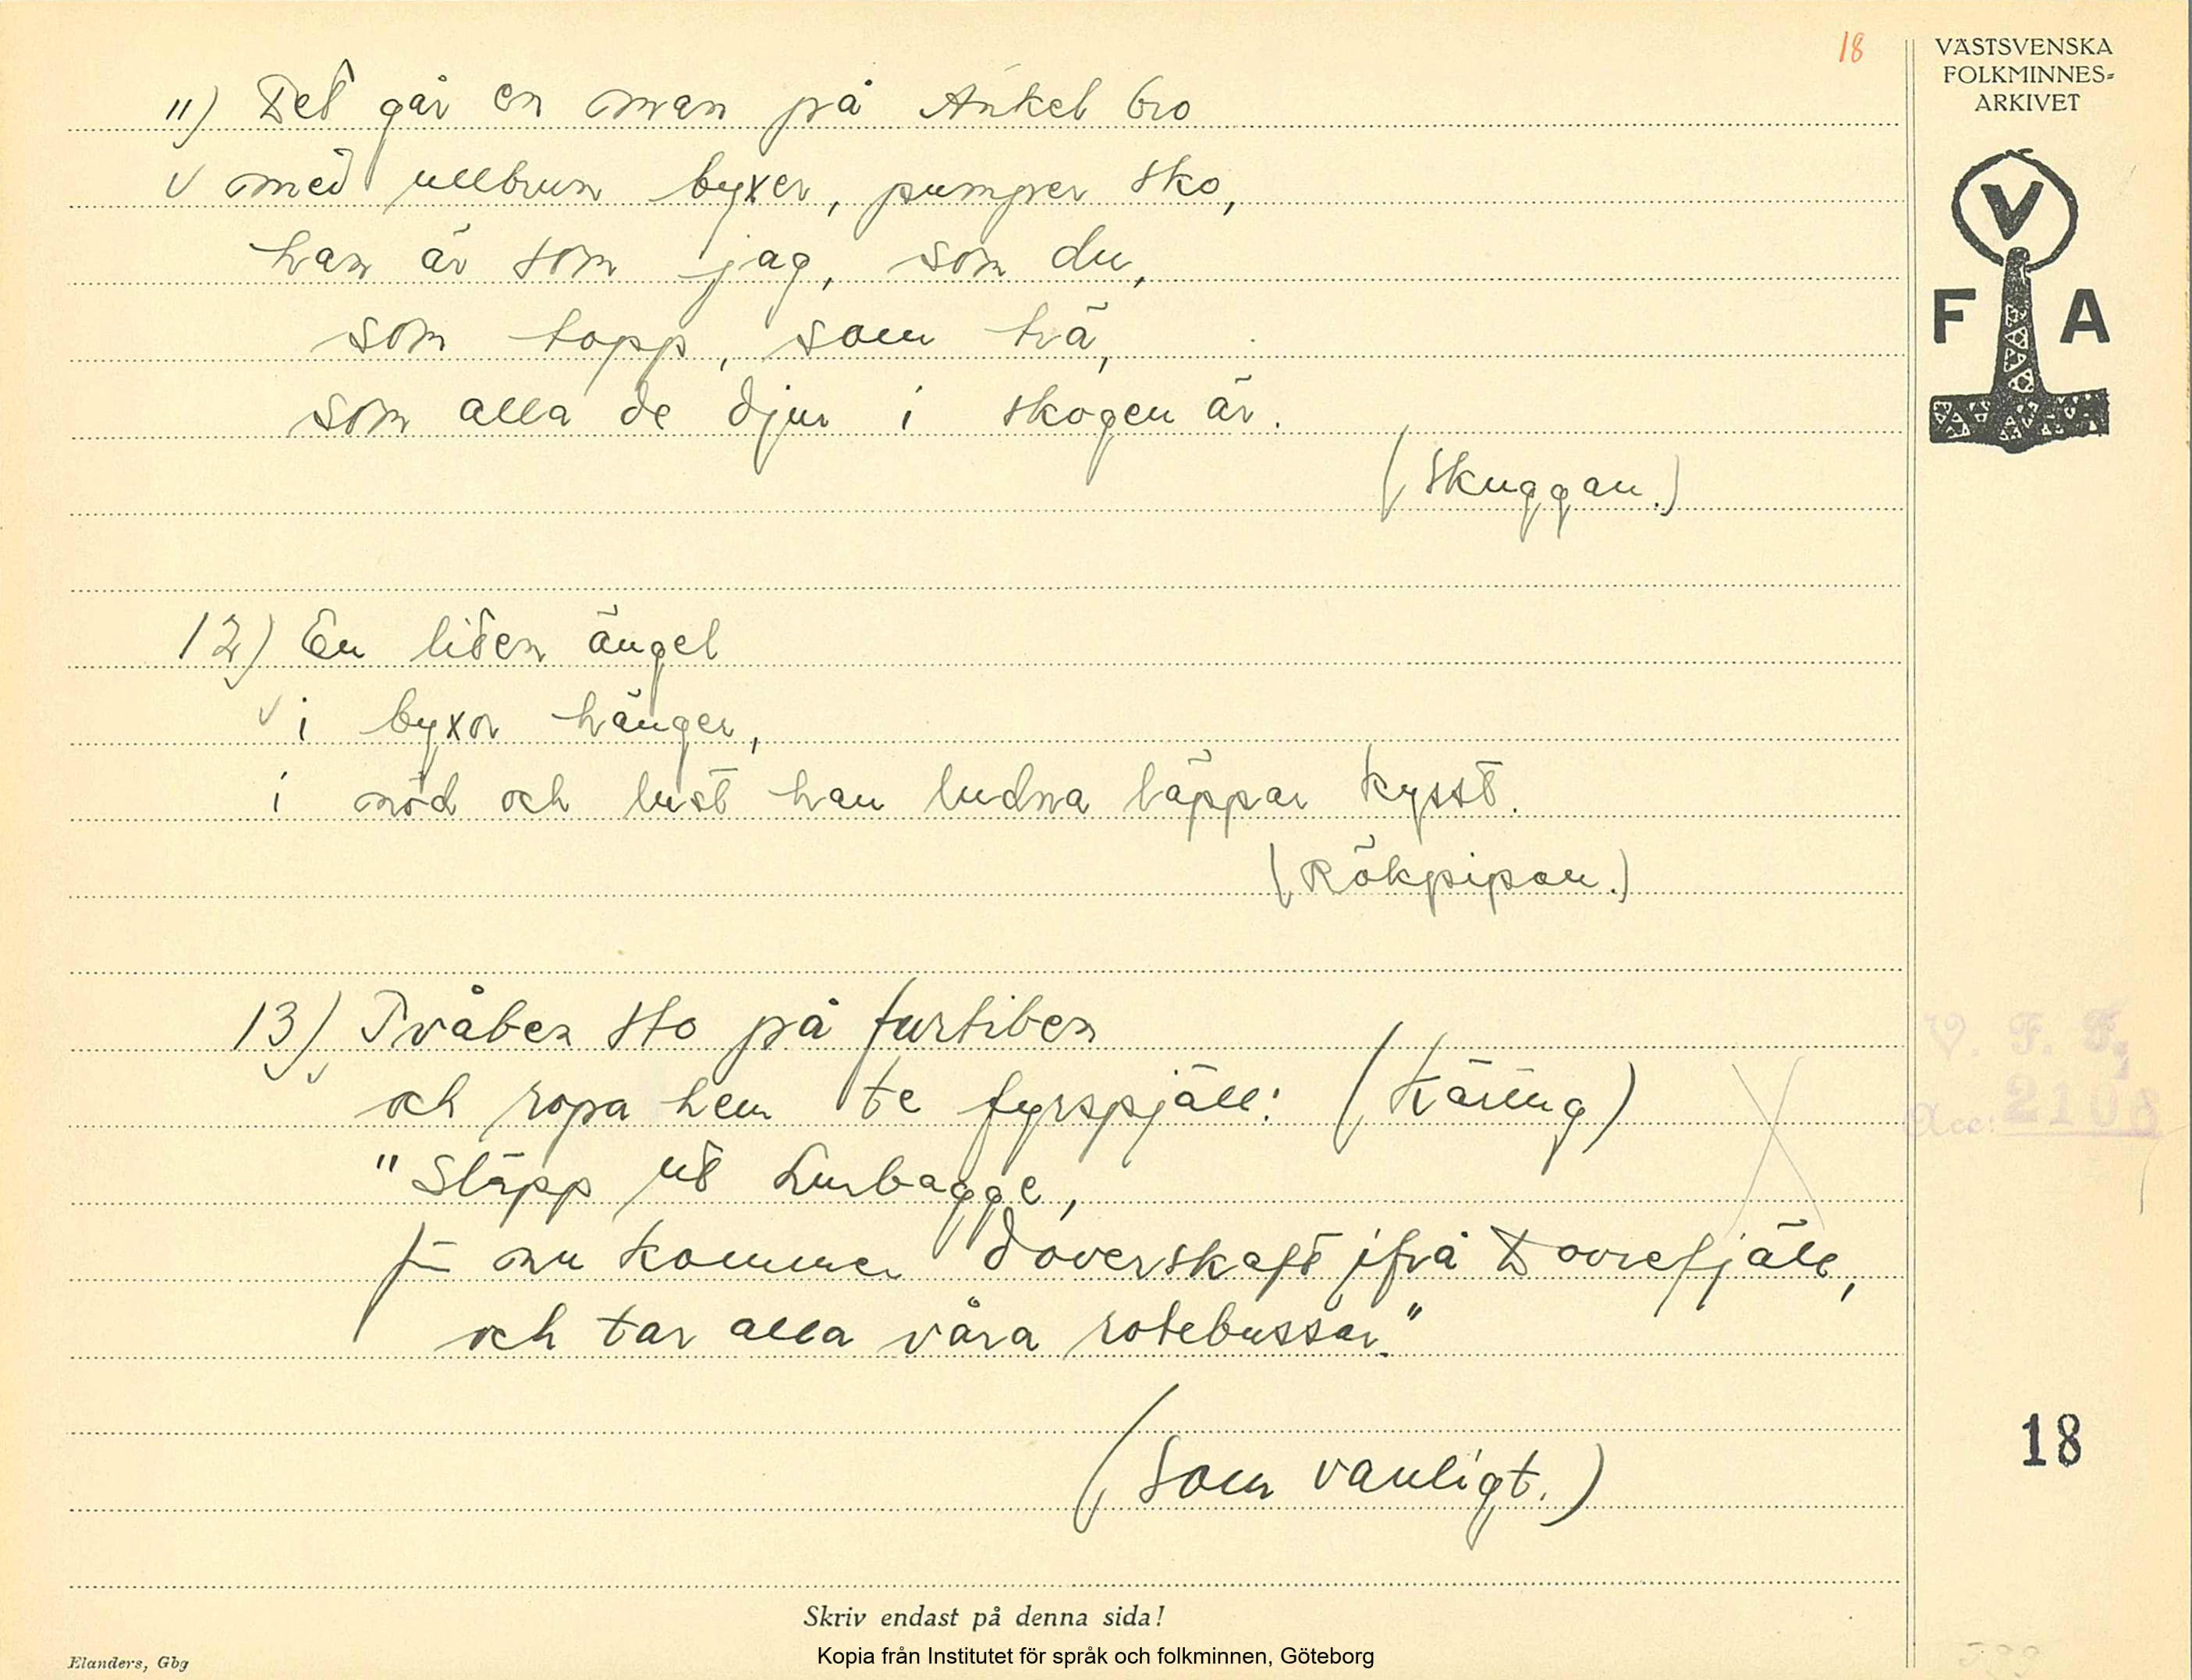 18
VÄSTSVENSKA
FOLKMINNES=
ARKIVET
V
F A
11) Det går en man på Ankel bro
med ullbrun byxer, pumper sko,
han är som jag, som du,
som topp, som trä,
som alla de djur i skogen är.
(Skuggan.)
12) En liten ängel
i byxor hänger,
i nöd och lust han ludna läppar kysst.
(Rökpipan.)
13) Tvåben sto på furtiben
och ropa hem te fyrspjäll: (Käring)
"Släpp ut Lurbagge,
för nu kommer doverskaft ifrå Dovrefjäll,
och tar alla våra rotebussar."
(Som vanligt.)
V. F. F.
Acc: 2108
18
Skriv endast på denna sida!
Kopia från Institutet för språk och folkminnen, Göteborg
Elanders, Gbg